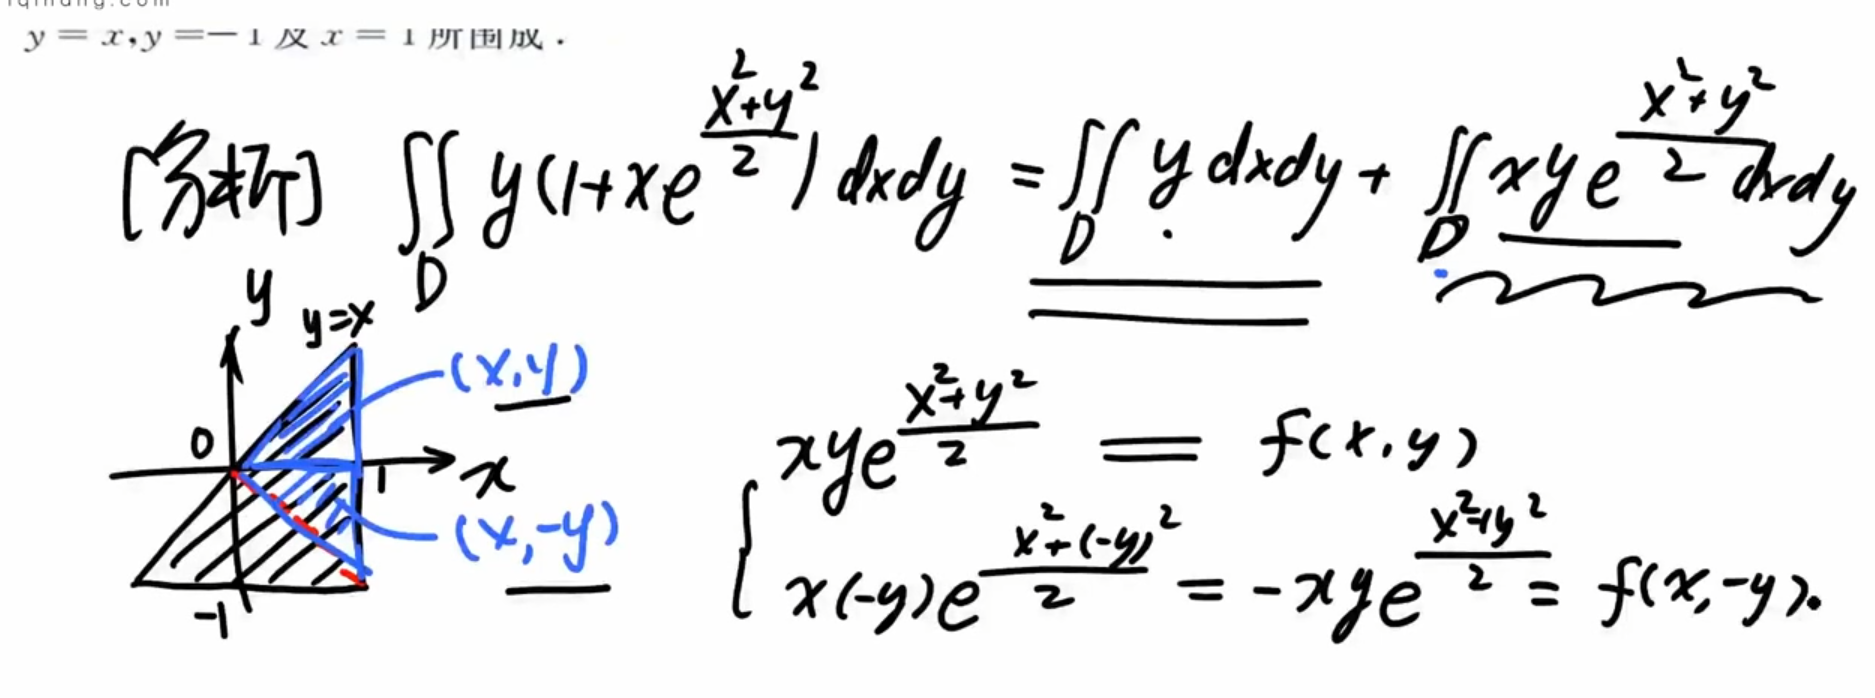 iqihang.com
y = x, y = −1 及 x = 1 所围成.
[分析] ∬_D y(1+xe^{\frac{x²+y²}{2}}) dxdy = ∬_D y dxdy + ∬_D xye^{\frac{x²+y²}{2}} dxdy
y
y=x
(x,y)
0
1
x
(x,-y)
-1
xye^{\frac{x²+y²}{2}} = f(x,y)
x(-y)e^{\frac{x²+(-y)²}{2}} = -xye^{\frac{x²+y²}{2}} = f(x,-y).